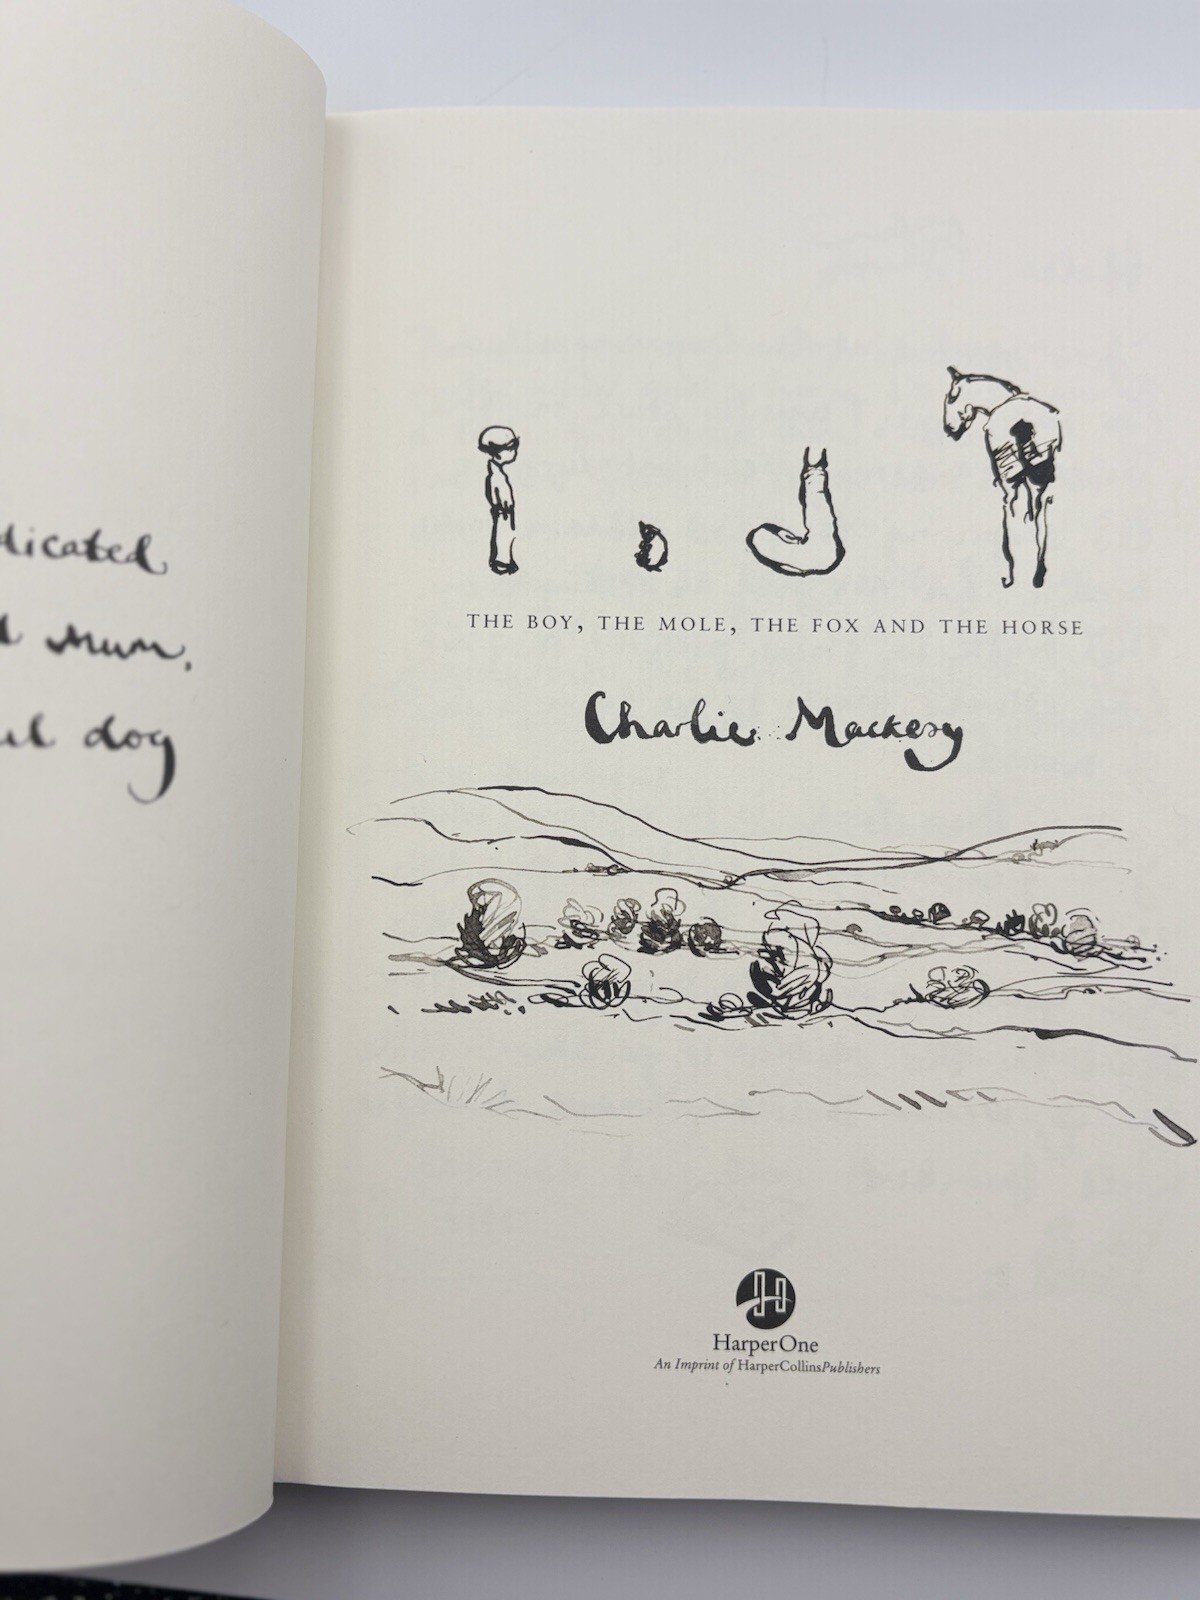 dicated
Mum,
dog
THE BOY, THE MOLE, THE FOX AND THE HORSE
Charlie Mackesy
HarperOne
An Imprint of HarperCollinsPublishers